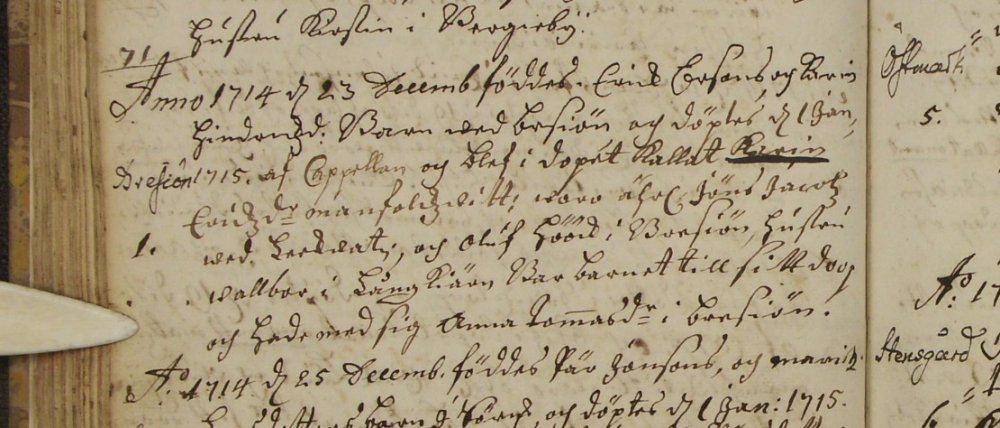 hustru Kirstin i Bergieby.
71
Anno 1714 d 23 Decemb föddes Erick Ersons, och Karin
Hindrichzd: Barn wed bresiön och döptes d 1 Jan,,
Bresiön 1715. af Cappellan och blef i dopet Kallat Karin
Erichzdr manfolckz witt: woro åhrl Jöns Jacobz
1. wed. och Oluf Höök i Bresiön, hustru
wallbor i Lång Kiärn Bar barnet till sitt doop
och hade med sig Anna Tomasdr i bresiön.
Ao 1714 d 25 Decemb. föddes Pär Jönsons, och marit
barn och döptes d 1 Jan: 1715.
Östmark
5.
Ao 17
Stensgård
6.